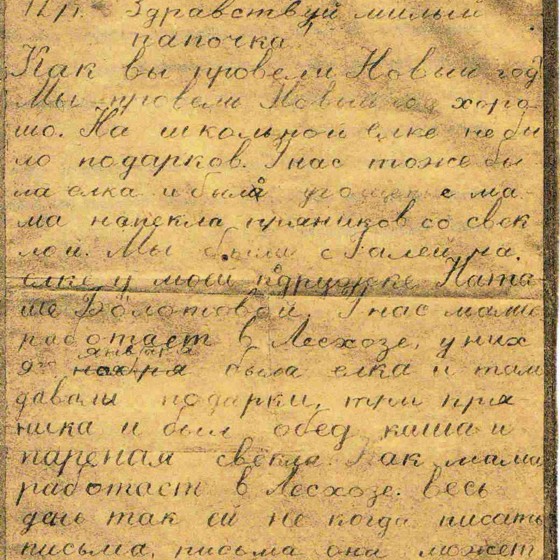 12/I. Здравствуй милый
папочка
Как вы провели Новый год
Мы провели Новый год хоро-
шо. На школьной елке не бы
ло подарков. У нас тоже бы
ла елка и было угощенье ма-
ма напекла пряников со свек
лой. Мы были с Галей на
елке у моей подружке Ната
ше Болотовой. У нас мама
работает в Лесхозе, у них
января
была елка и там
давали подарки, три пря-
ника и был обед каша и
пареная свекла. Так мама
работает в Лесхозе. весь
день так ей не когда писать
письма, письма она может